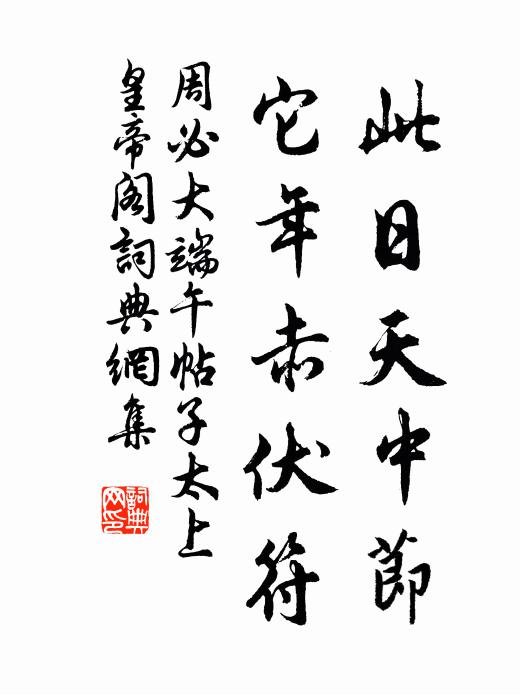 此日天中節
它年赤伏符
周必大端午帖子太上
皇帝阁詞典網集
詞典网印